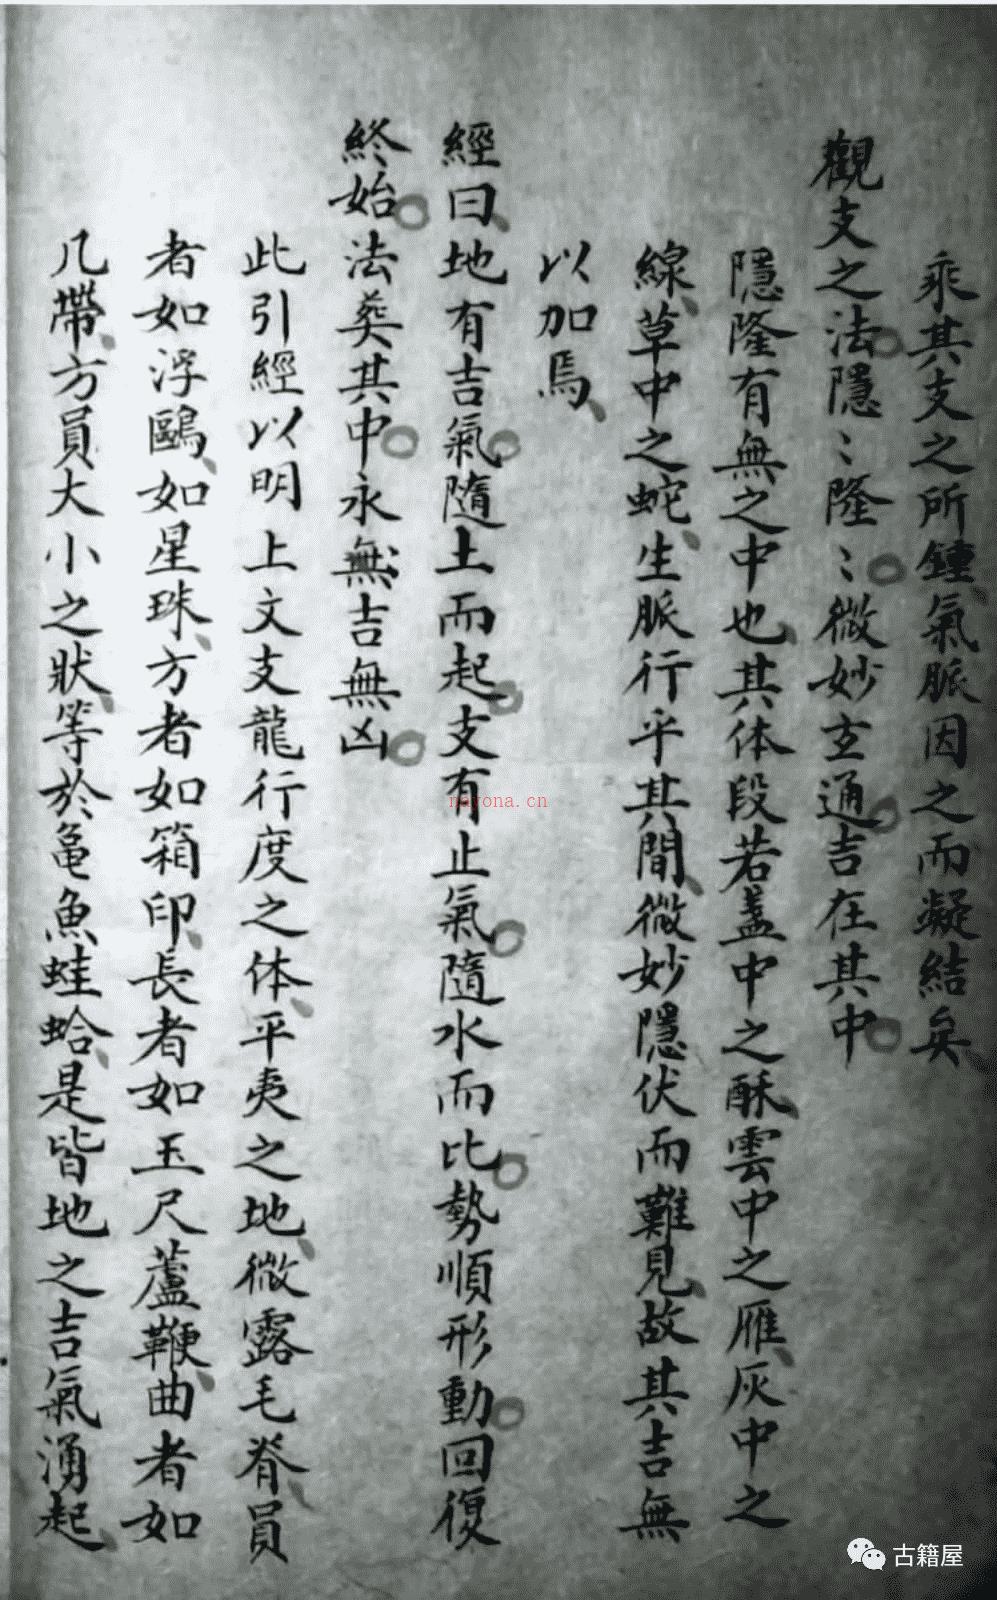 乘其支之所鍾氣脈因之而凝結矣
觀支之法隱〻隆〻微妙玄通吉在其中
隱隆有無之中也其体段若盞中之酥雲中之雁灰中之
線草中之蛇生脈行乎其間微妙隱伏而難見故其吉無
以加焉
經曰地有吉氣隨土而起支有止氣隨水而比勢順形動回復
終始法葬其中永無吉無凶
此引經以明上文支龍行度之体平夷之地微露毛脊員
者如浮鷗如星珠方者如箱印長者如玉尺蘆鞭曲者如
几帶方員大小之狀等於黽魚蛙蛤是皆地之吉氣湧起
nayona.cn
古籍屋